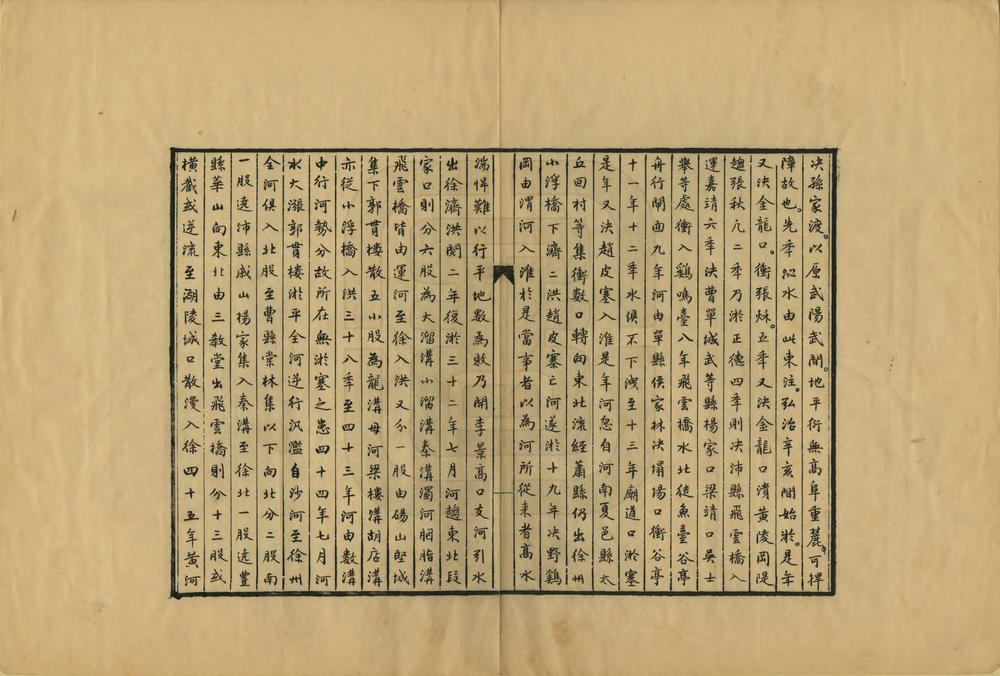 决孫家渡。以原武陽武閒。地平衍無髙阜重麓。可捍
障故也。先季沁水由此東注。弘治辛亥閒始淤。是年
又決金龍口。衝張秌。五季又決金龍口潰黄陵岡隄
趨張秋凢二季乃淤正德四季則决沛縣飛雲橋入
運嘉靖六季決曹單城武等縣楊家口梁靖口吴士
舉等處衝入鷄鳴臺八年飛雲橋水北徒魚臺谷亭
舟行閘面九年河由單縣侯家林决塌塲口衝谷亭
十一年十二季水俱不下洩至十三年廟道口淤塞
是年又決趙皮寨入淮是年河忽自河南夏邑縣太
丘回村等集衝數口轉向東北流經蕭縣仍出徐州
小浮橋下濟二洪趙皮寨亡河遂淤十九年决野鷄
岡由渭河入淮於是當事者以為河所從来者髙水
湍悍難以行平地數為敗乃開李景髙口支河引水
出徐濟洪閱二年復淤三十二年七月河趨東北段
家口則分六股為大溜溝小溜溝秦溝濁河胭脂溝
飛雲橋皆由運河至徐入洪又分一股由碭山堅城
集下郭貫樓散五小股為龍溝母河梁樓溝胡店溝
亦從小浮橋入洪三十八季至四十三年河由數溝
中行河勢分故所在無淤塞之患四十四年七月河
水大漲郭貫樓淤乎全河逆行汎濫自沙河至徐州
全河俱入北股至曹縣棠林集以下向北分二股南
一股遶沛縣戚山楊家集入秦溝至徐北一股遶豐
縣華山向東北由三教堂出飛雲橋則分十三股或
橫截或逆流至湖陵城口散漫入徐四十五年黄河